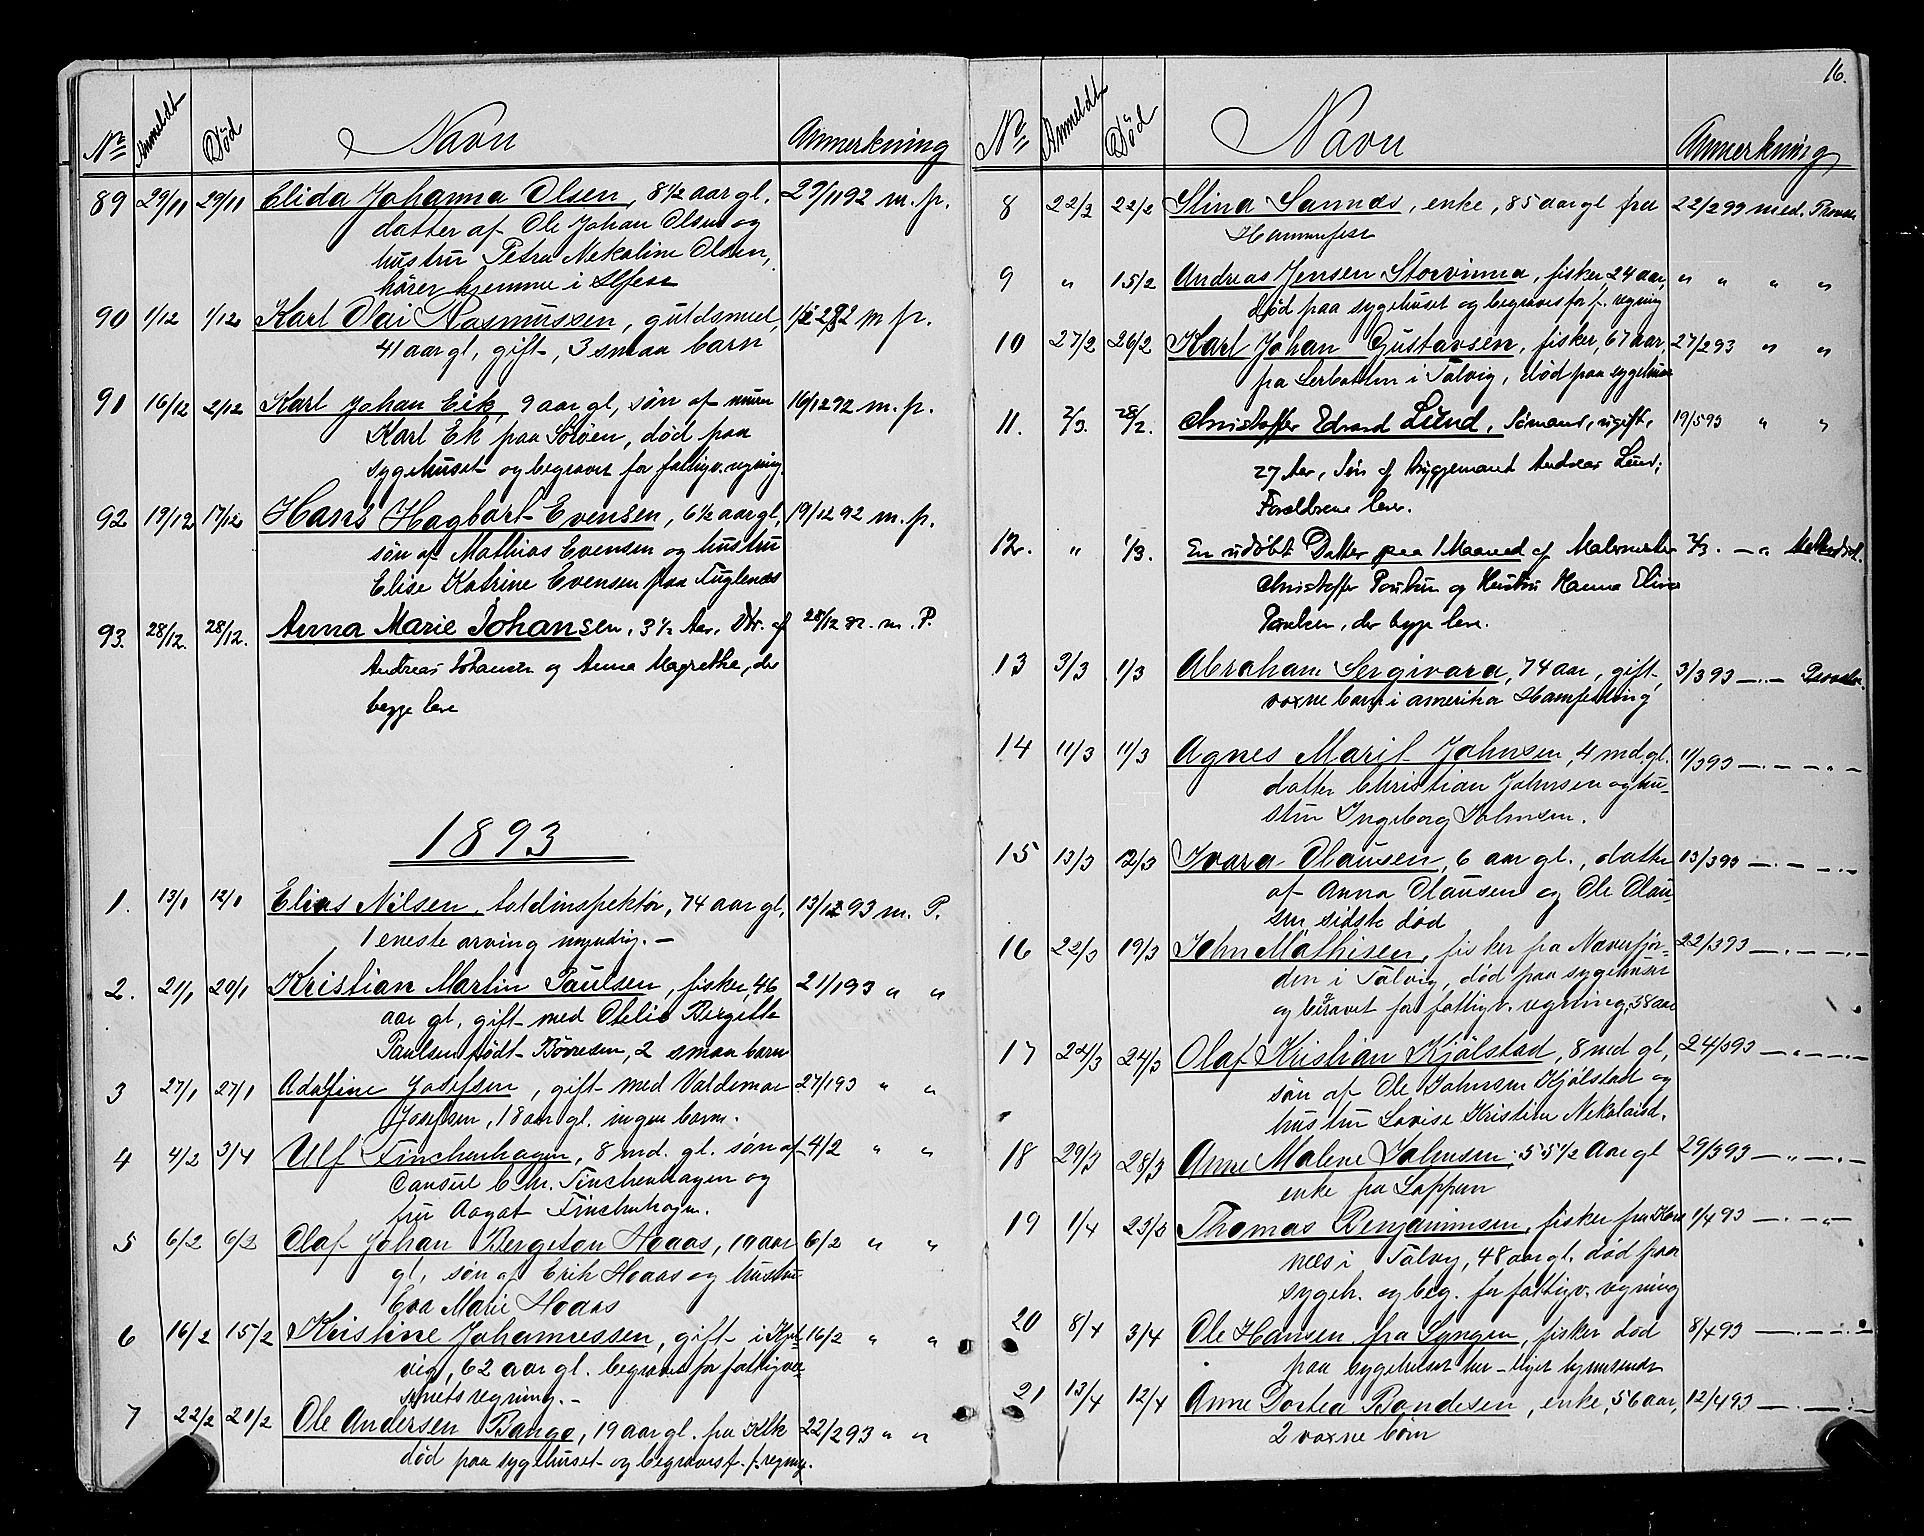 No Anmeldt Död Navn Anmerkning
89 29/11 29/11 Elida Johanna Olsen, 8½ aar gl. 29/11 92 m. p.
datter af Ole Johan Olsen og
hustru Petra Nekoline Olsen,
hører hjemme i
90 1/12 1/12 Karl Olai Rasmussen, guldsmed, 1/12 92 m p.
41 aar gl, gift, 3 smaa børn
91 16/12 2/12 Karl Johan Eik, 9 aar gl, søn af 16/12 92 m. p.
Karl Ek paa Sørøen, død paa
sygehuset og begravet for fattigv. regning
92 19/12 17/12 Hans Hagbart Evensen, 6½ aar gl, 19/12 92 m. p.
søn af Mathias Evensen og hustru
Elise Katrine Evensen paa Fuglenæs
93. 28/12. 28/12. Anna Marie Johansen, 3½ Aar, Dtr. af 28/12 92. m. P.
Andreas Johansen og Anna Magrethe, der
begge leve
1893
1. 13/1 12/1 Elias Nilsen, toldinspektør, 74 aar gl, 13/1 93 m. P.
1 eneste arving myndig. —
2. 21/1 20/1 Kristian Martin Paulsen, fisker, 46 21/1 93 " "
aar gl, gift med Otelie Bergitte
Paulsen født Børresen, 2 smaa børn
3 27/1 27/1 Adolfine Josefsen, gift med Valdemar 27/1 93 " "
Josefsen, 18 aar gl. ingen børn.
4 4/2 3/4 Ulf Finchenhagen, 8 md. gl. søn af 4/2 " "
Consul Chr. Finchenhagen og
fru Aagot Finchenhagen.
5 6/2 6/2 Olaf Johan Bergeton Hoaas, 10 aar 6/2 " "
gl, søn af Erik Hoaas og hustru
Eva Marie Hoaas
6 16/2 15/2 Kristine Johannessen, gift i 16/2 " "
vig, 62 aar gl. begravet for fattigvæ-
snets regning. —
7 22/2 21/2 Ole Andersen Bange, 19 aar gl. fra 22/2 93 " "
død paa sygehuset og begravet f. f. regning.
16.
No Anmeldt Död Navn Anmerkning
8 22/2 22/2 Stina Sannæs, enke, 85 aar gl fra 22/2 93 med.
Hammerfest
9 " 15/2 Andreas Jensen Storvinna, fisker, 24 aar, " " " "
død paa sygehuset og begravet for f. regning
10 27/2 26/2 Karl Johan Gustavsen, fisker, 67 aar, 27/2 93 " "
fra Lerbotten i Talvig, død paa sygehuset
11. 2/3. 28/2. Christoffer Edvard Lund, Sømand, ugift, 19/5 93 " "
27 Aar, Søn af Byggemand Andreas Lund;
Forældrene lever.
12. " 1/3. En udøbt Datter paa 1 Maaned af Malermester 2/3. — "
Christoffer Poulsen og Hustru Hanna Elise
Poulsen, der begge leve.
13 3/3 1/3 Abraham Sergivara, 74 aar, gift, 3/3 93 —.—
voxne børn i amerika
14 11/3 11/3 Agnes Marit Johnsen, 4 md. gl. 11/3 93 —.— —.—
datter Christian Johnsen og hu-
stru Ingeborg Johnsen.
15 13/3 12/3 Ivara Olausen, 6 aar gl., datter 13/3 93 —.— —.—
af Anna Olausen og Ole Olau-
sen sidste død
16 22/3 19/3 John Mathisen, fisker fra Næverfjor- 22/3 93 —.— —.—
den i Talvig, død paa sygehuset
og begravet for fattigv. regning, 58 aar
17 24/3 24/3 Olaf Kristian Kjölstad, 8 md gl, 24/3 93 —.— —.—
søn af Ole Johnsen Kjölstad og
hustru Lovise Kristine
18 29/3 28/3 Anne Malene Johnsen, 55½ Aar gl 29/3 93 —"— —.—
enke fra Loppen
19 1/4 23/3 Thomas Benjaminsen, fisker fra 1/4 93 —.— —"
næs i Talvig, 48 aar gl. død paa
sygeh. og beg. for fattigv. regning
20 8/4 3/4 Ole Hansen fra Lyngen, fisker død 8/4 93 —.— —.—
paa sygehuset her — liget hjemsendt
21 13/4 12/4 Anne Dortea Bondesen, enke, 56 aar, 12/4 93 —.— —.—
2 voxne børn